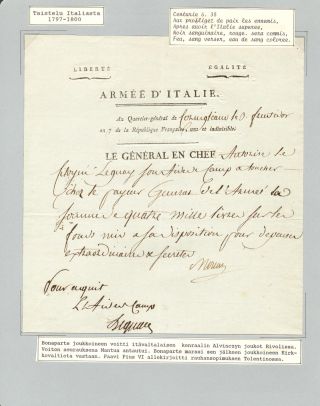 Taistelu Italiasta
1797-1800
Centurie 6. 38
Aux profligez de paix les ennemis,
Apres avoir l'Italie supence,
Noir sanguinaire, rouge. sera commis,
Feu, sang verser, eau de sang coloree.
LIBERTÉ ÉGALITÉ
ARMÉE D'ITALIE.
Au Quartier-général de
an 7 de la République Française, une et indivisible.
LE GÉNÉRAL EN CHEF Autorise le
Citoyen Aide de Camp a toucher
chez le payeur General de l'Armée la
somme de quatre mille livres sur les
fonds mis a sa disposition pour depenses
extraordinaires & secretes
Pour acquit
L'Aide de Camp
Bonaparte joukkoineen voitti itävaltalaisen kenraalin Alvinczyn joukot Rivolissa.
Voiton seurauksena Mantua antautui. Bonaparte marssi sen jälkeen joukkoineen Kirk-
kovaltiota vastaan. Paavi Pius VI allekirjoitti rauhansopimuksen Tolentinossa.